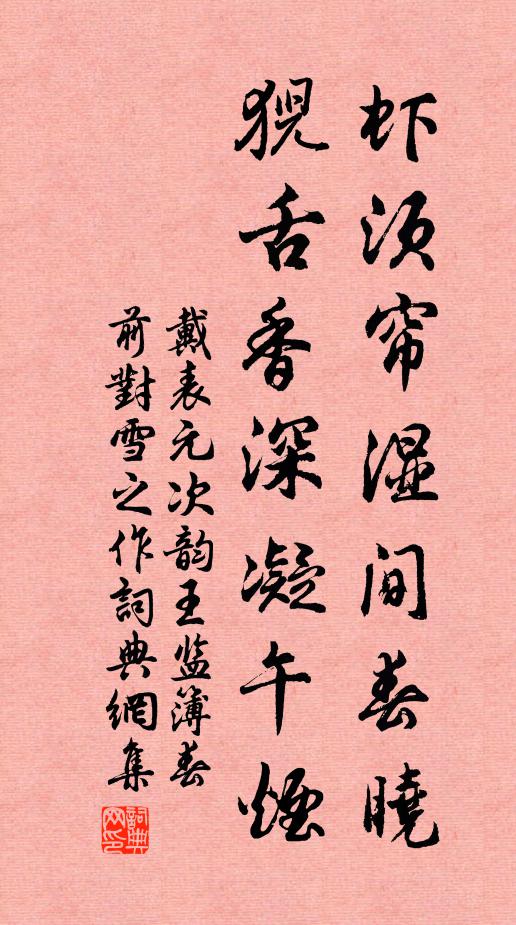 虾须帘湿间春曉
猊舌香深凝午煙
戴表元次韵王监簿春
前對雪之作詞典網集
詞典网印